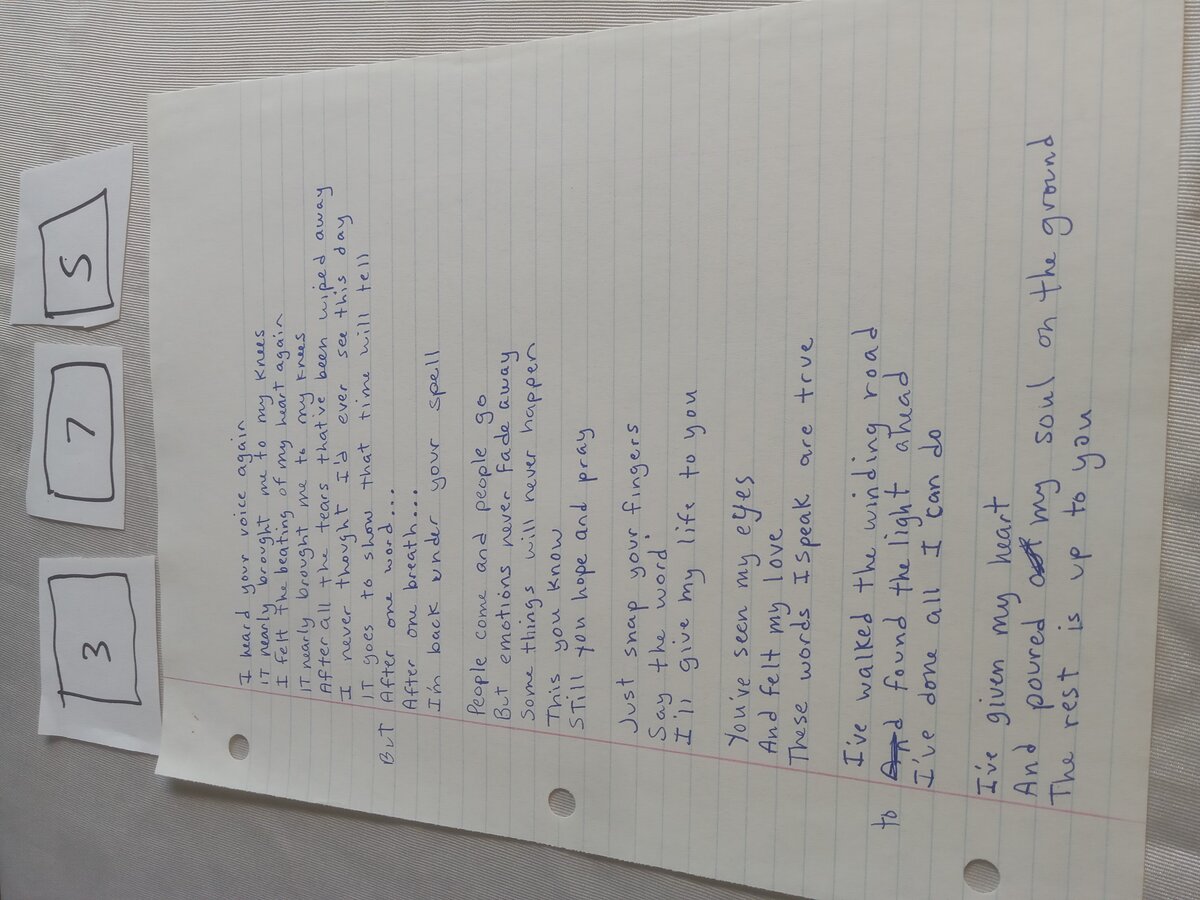 3
7
5
I heard your voice again
IT nearly brought me to my knees
I felt the beating of my heart again
IT nearly brought me to my knees
After all the tears that've been wiped away
I never thought I'd ever see this day
IT goes to show that time will tell
But After one word...
After one breath...
I'm back under your spell
People come and people go
But emotions never fade away
Some things will never happen
This you know
STill you hope and pray
Just snap your fingers
Say the word
I'll give my life to you
You've seen my eyes
And felt my love
These words I speak are true
I've walked the winding road
to found the light ahead
I've done all I can do
I've given my heart
And poured my soul on the ground
The rest is up to you